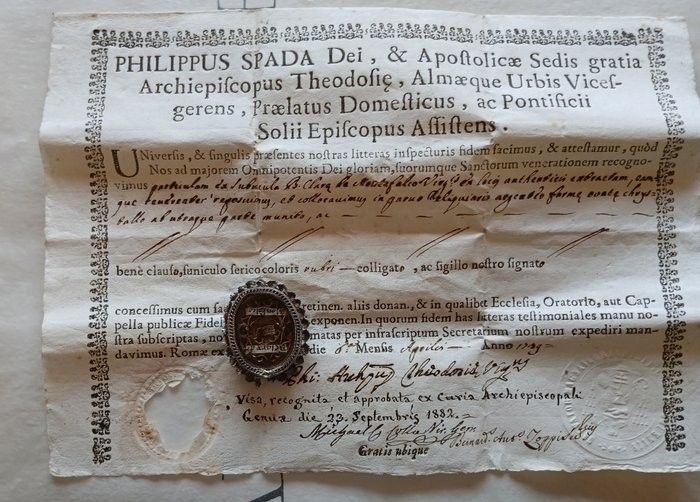 PHILIPPUS SPADA Dei, & Apostolicæ Sedis gratia
Archiepiscopus Theodosię, Almæque Urbis Vicef-
gerens, Prælatus Domesticus, ac Pontificii
Solii Episcopus Assistens.
UNiversis, & singulis præsentes nostras litteras inspecturis fidem facimus, & attestamur, quòd
Nos ad majorem Omnipotentis Dei gloriam, suorumque Sanctorum venerationem recogno-
vimus particulam ex B. Clara de authenticis extractam, eam-
que reverenter reposuimus, et collocavimus in parvo Reliquiario argenteo formę ovatę chrys-
tallo ab utraque parte munito, ac
benè clauso, funiculo serico coloris rubri colligato, ac sigillo nostro signato
concessimus cum retinen. aliis donan., & in qualibet Ecclesia, Oratorio, aut Cap-
pella publicæ Fidel exponen. In quorum fidem has litteras testimoniales manu no-
stra subscriptas, no matas per infrascriptum Secretarium nostrum expediri man-
davimus. Romæ ex die Mensis Aprilis Anno
Visa, recognita et approbata ex Curia Archiepiscopali
Genuæ die 23. Septembris 1882.
Gratis ubique